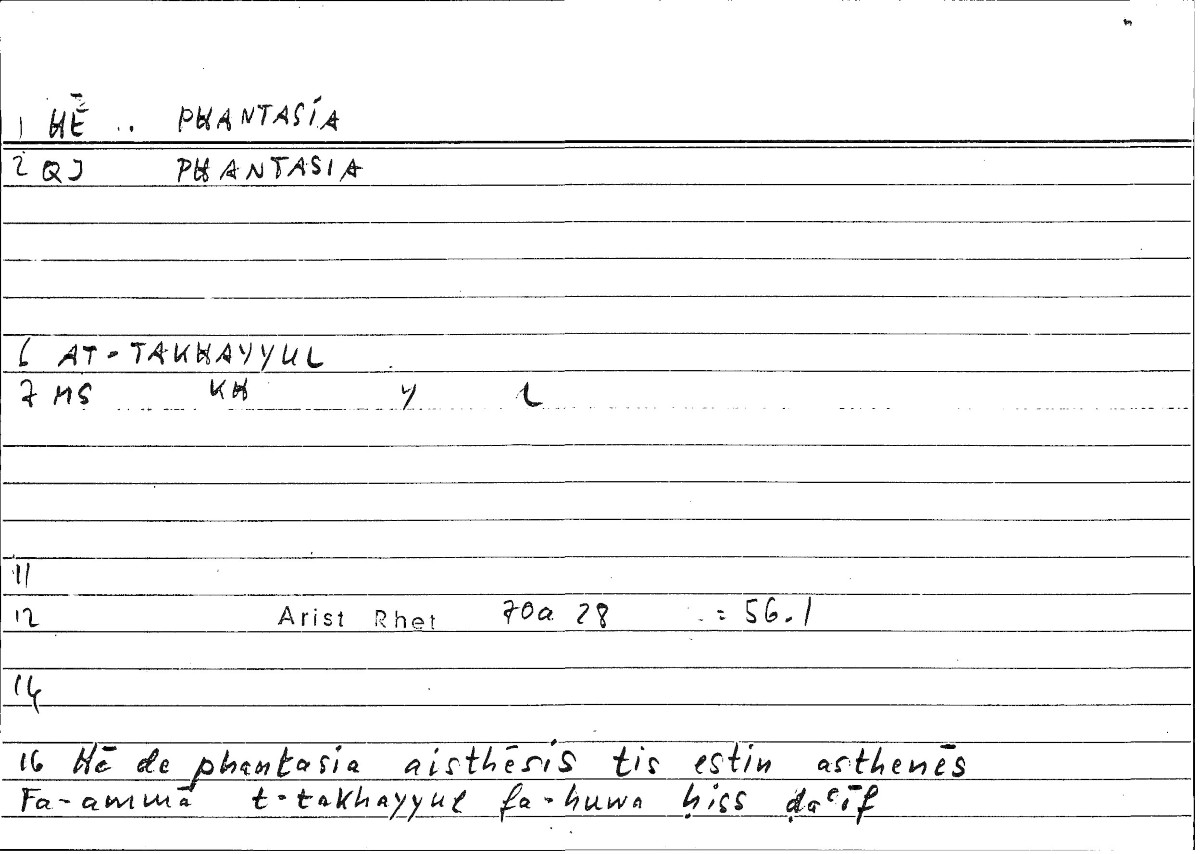 1 HĒ .. PHANTASÍA
2 QJ PHANTASIA
6 AT-TAKHAYYUL
7 MS KH Y L
11
12 Arist Rhet 70a 28 = 56.1
14
16 Hē de phantasía aísthēsís tis estin asthenēs
Fa-ammā t-takhayyul fa-huwa ḥiss ḍaʿīf